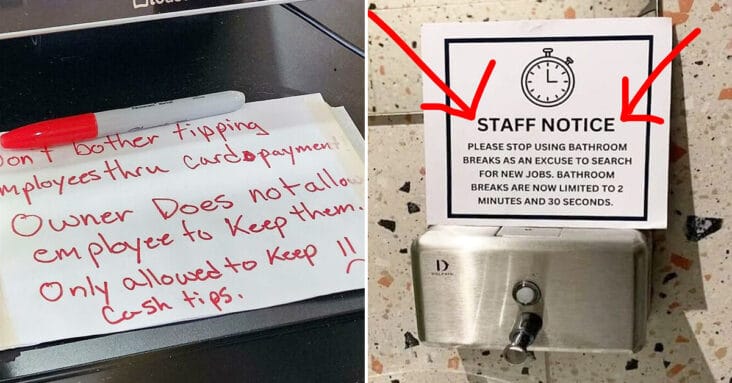 Don't bother tipping
employees thru card payment
Owner Does not allow
employee to keep them.
Only allowed to keep !!
Cash tips.
STAFF NOTICE
PLEASE STOP USING BATHROOM
BREAKS AS AN EXCUSE TO SEARCH
FOR NEW JOBS. BATHROOM
BREAKS ARE NOW LIMITED TO 2
MINUTES AND 30 SECONDS.
D
DOLPHIN